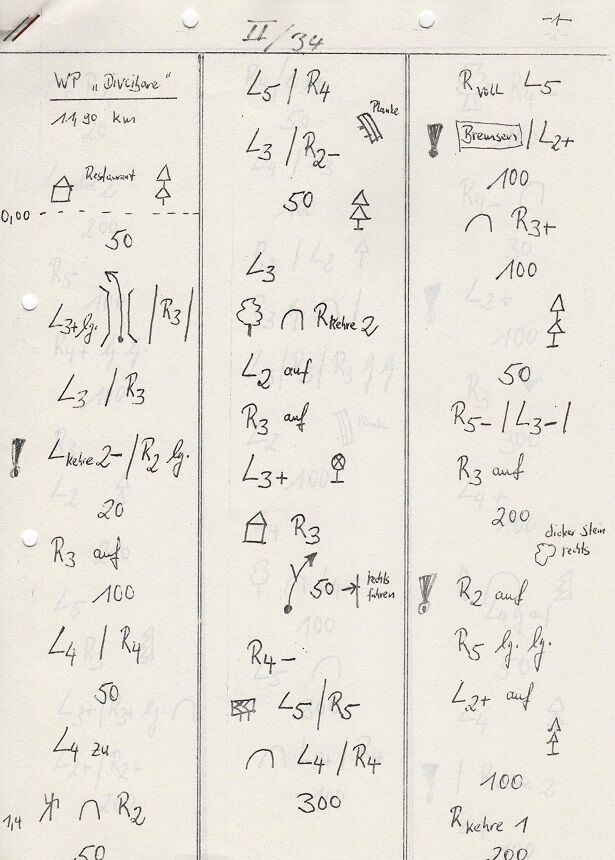 -1-
II/34
WP „Divcibare“
11,90 km
Restaurant
0,00
50
L3+ lg. /R3/
L3 / R3
! Lkehre 2- / R2 lg.
20
R3 auf
100
L4 / R4
50
L4 zu
1,4 R2
50
L5 / R4
Planke
L3 / R2-
50
L3
Rkehre 2
L2 auf
R3 auf
L3+
R3
50 → rechts fahren
R4-
L5 / R5
L4 / R4
300
Rvoll L5
! Bremsen / L2+
100
R3+
100
50
R5- / L3- /
R3 auf
200
dicker Stein
rechts
! R2 auf
R5 lg. lg.
L2+ auf
100
Rkehre 1
200